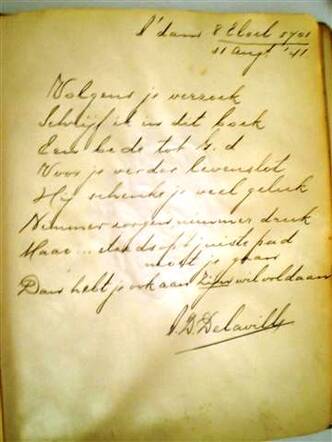 A'dam 8 Eloel 5701
11 Aug. '41
Volgens je verzoek
Schrijf ik in dit boek
Een bede tot G.d
Voor je verder levenslot
Hij schenke je veel geluk
Nimmer zorgen, nimmer druk
Maar... steeds op 't juiste pad
moet je gaan
Dan hebt je ook aan Zijn wil voldaan
D. Delaville